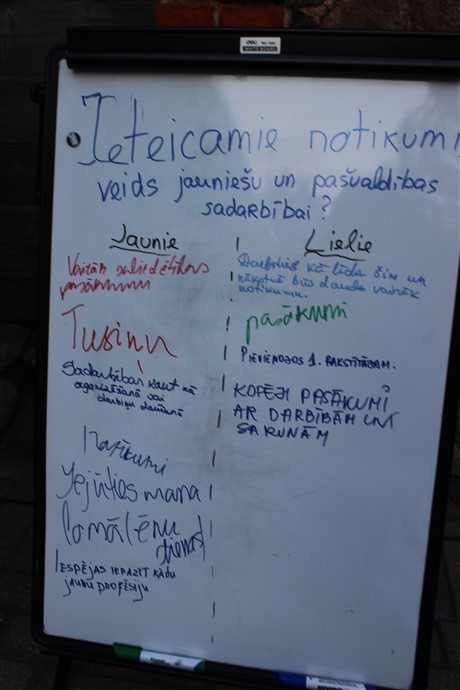 Ieteicamie notikumi
veids jauniešu un pašvaldības
sadarbībai?
Jaunie
Vairāk saliedētības
pasākumu
Tusiņu
Sadarbības kaut kā
organizēšanā vai
darbiņu došanā
Iejūties mana
ēnu
dienas
Iespējas iepazīt kādu
jaunu profesiju
Lielie
Darboties kā līdz šim un
nākotnē būs daudz vairāk
notikumu.
pasākumi
Pievienojos 1. rakstītājam.
KOPĒJI PASĀKUMI
AR DARBĪBĀM UN
SARUNĀM